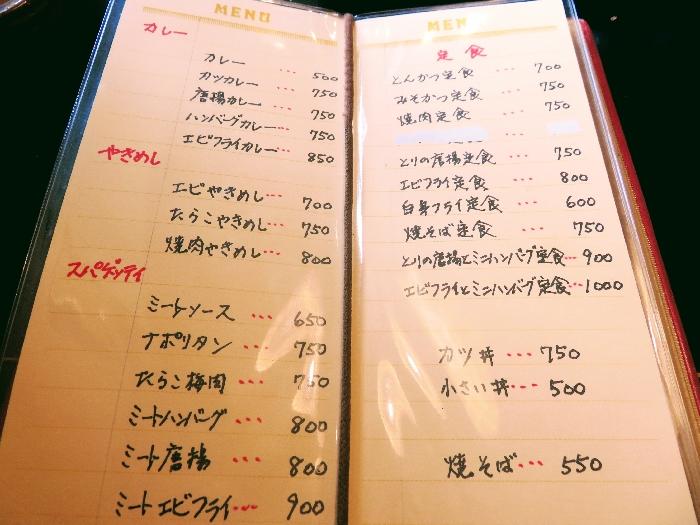 MENU
カレー
カレー … 500
カツカレー … 750
唐揚カレー … 750
ハンバーグカレー … 750
エビフライカレー … 850
やきめし
エビやきめし … 700
たらこやきめし … 750
焼肉やきめし … 800
スパゲッティ
ミートソース … 650
ナポリタン … 750
たらこ梅肉 … 750
ミートハンバーグ … 800
ミート唐揚 … 800
ミートエビフライ … 900
MEN
定食
とんかつ定食 … 700
みそかつ定食 … 750
焼肉定食 … 750
…
とりの唐揚定食 … 750
エビフライ定食 … 800
白身フライ定食 … 600
焼そば定食 … 750
とりの唐揚とミニハンバーグ定食 … 900
エビフライとミニハンバーグ定食 … 1000
カツ丼 … 750
小さい丼 … 500
焼そば … 550